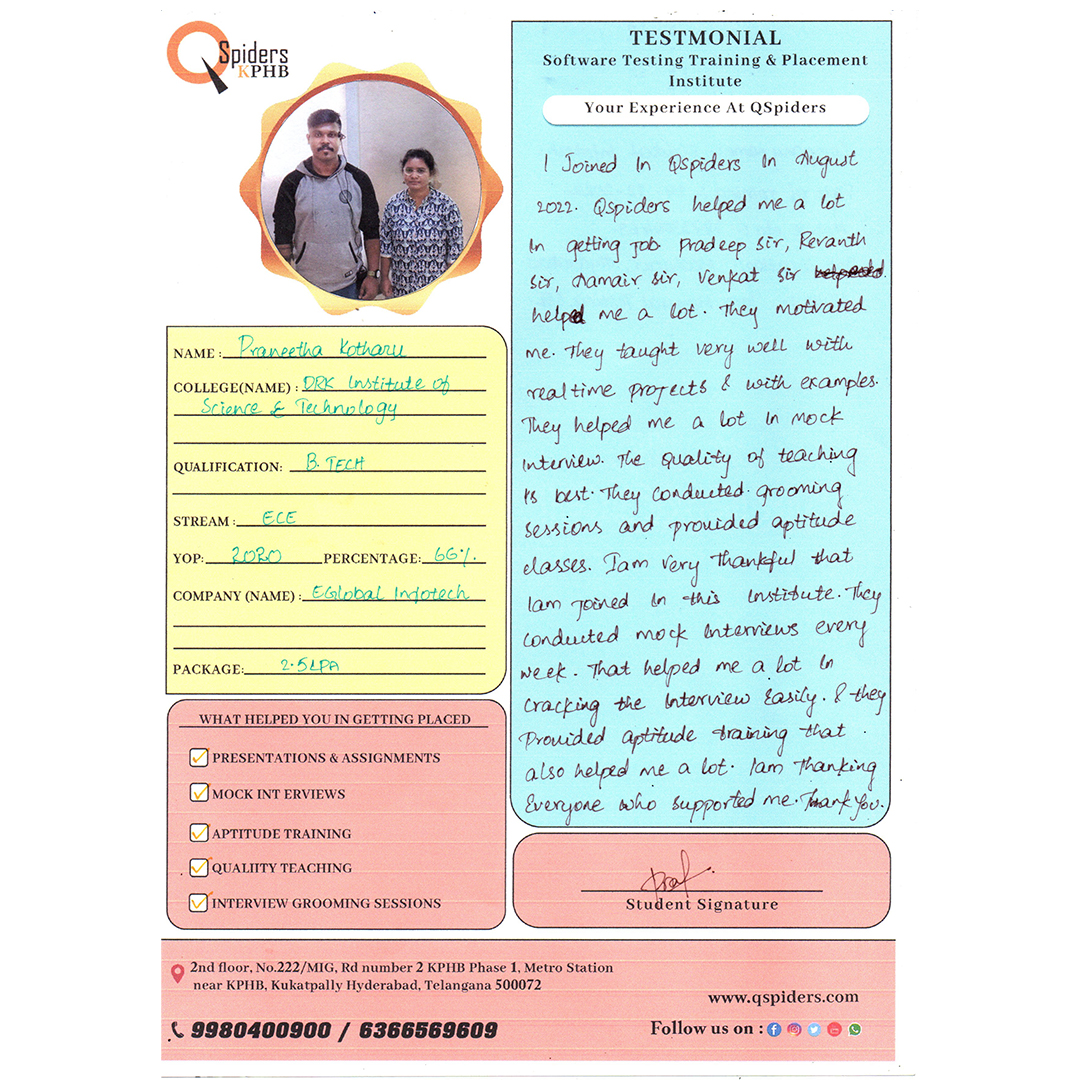 Spiders
KPHB
NAME : Praneetha Kotharu
COLLEGE(NAME) : DRK Institute of
Science & Technology
QUALIFICATION: B.TECH
STREAM : ECE
YOP: 2020 PERCENTAGE: 66%.
COMPANY (NAME) : EGlobal Infotech
PACKAGE: 2.5LPA
WHAT HELPED YOU IN GETTING PLACED
PRESENTATIONS & ASSIGNMENTS
MOCK INT ERVIEWS
APTITUDE TRAINING
QUALIITY TEACHING
INTERVIEW GROOMING SESSIONS
TESTMONIAL
Software Testing Training & Placement
Institute
Your Experience At QSpiders
I Joined In Qspiders In August
2022. Qspiders helped me a lot
In getting Job Pradeep Sir, Revanth
Sir, Aamair Sir, Venkat Sir
helped me a lot. They motivated
me. They taught very well with
real time projects & with examples.
They helped me a lot In mock
Interview. The quality of teaching
Is best. They conducted. grooming
sessions and provided aptitude
classes. Iam very thankful that
Iam Joined In this Institute. They
conducted mock Interviews every
week. That helped me a lot In
cracking the Interview Easily. & they
Provided aptitude training that.
also helped me a lot. Iam Thanking
Everyone who supported me. Thank You.
Student Signature
2nd floor, No.222/MIG, Rd number 2 KPHB Phase 1, Metro Station
near KPHB, Kukatpally Hyderabad, Telangana 500072
www.qspiders.com
9980400900 / 6366569609
Follow us on :